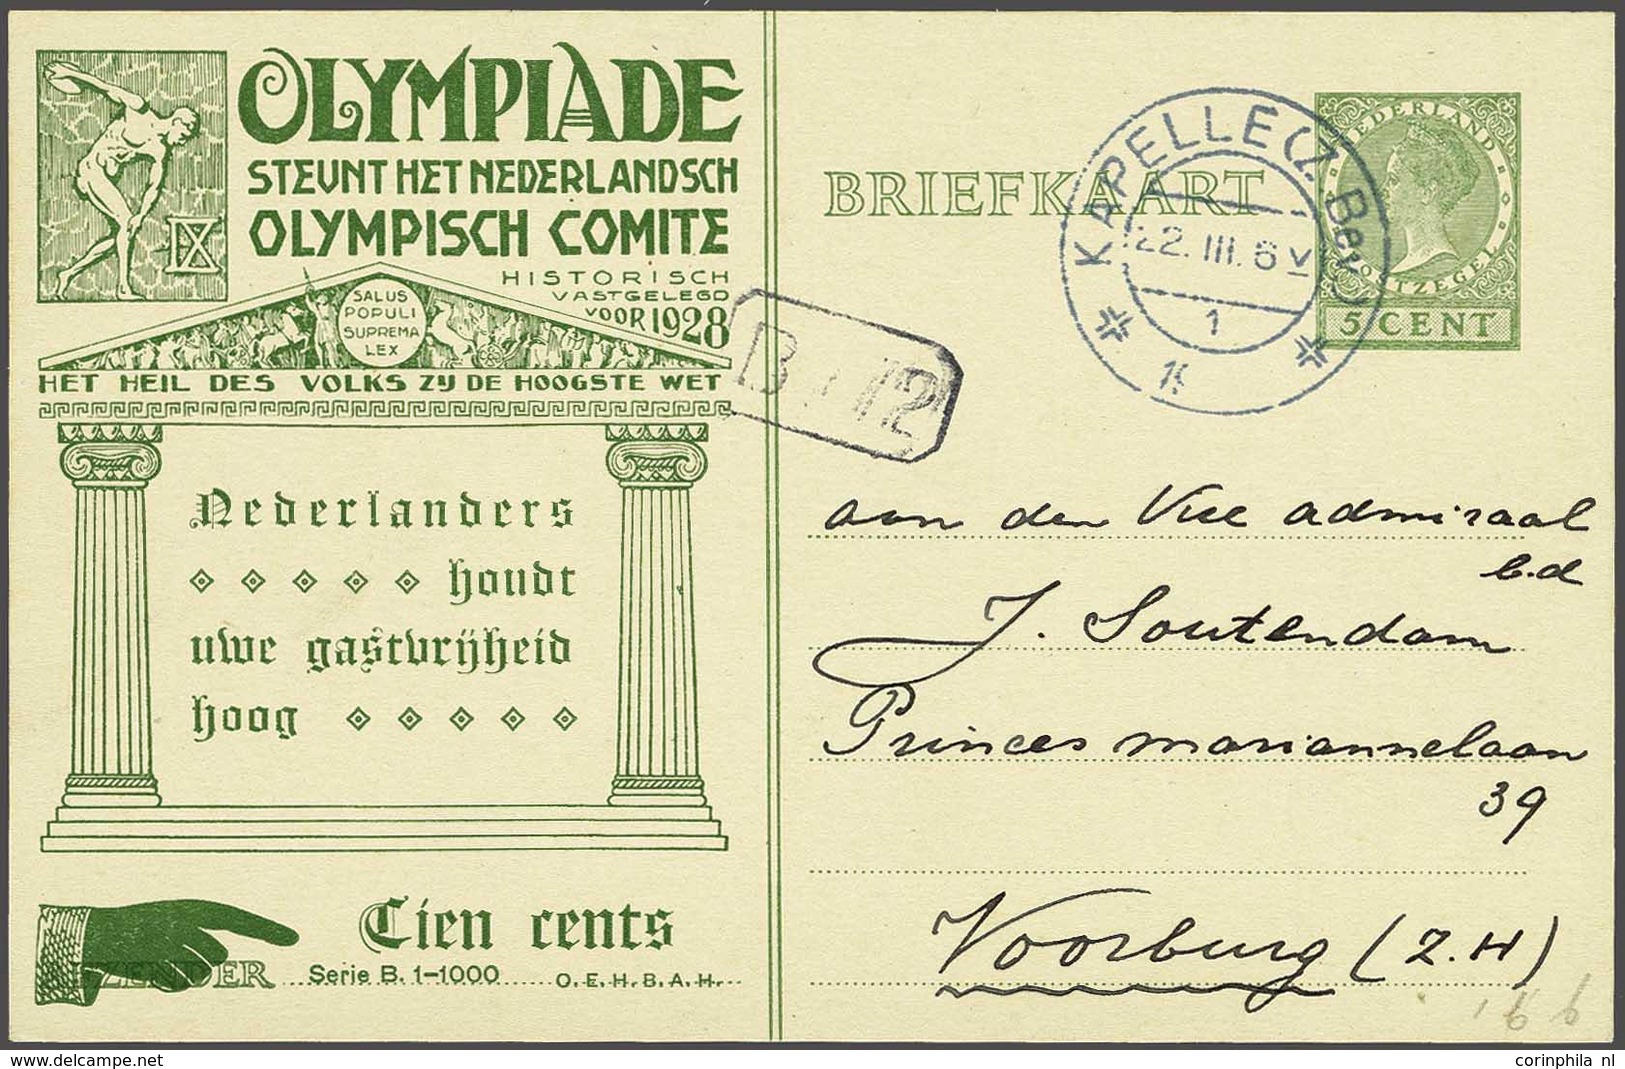 OLYMPIADE
STEUNT HET NEDERLANDSCH
OLYMPISCH COMITE
IX
HISTORISCH
VASTGELEGD
VOOR 1928
SALUS
POPULI
SUPREMA
LEX
HET HEIL DES VOLKS ZIJ DE HOOGSTE WET
Nederlanders
houdt
uwe gastvrijheid
hoog
Tien cents
AFZENDER
Serie B. 1-1000
O.E.H.B.A.H.
BRIEFKAART
KAPELLE (Z. Bev.)
22. III. 6 V
1
NEDERLAND
POSTZEGEL
5 CENT
aan den Vice admiraal
b.d
J. Soutendam
Princes mariannelaan
39
Voorburg (Z.H)
corinphila nl